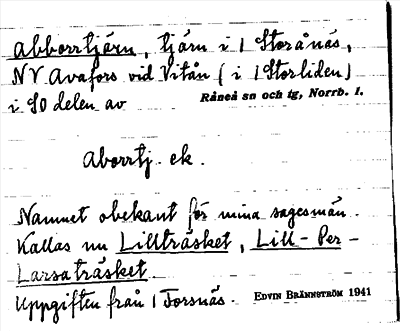 Abborrtjärn, tjärn i 1 Storånäs,
NV Avafors vid Vitån (i 1 Storliden)
i SO delen av Råneå sn och tg, Norrb. l.
Aborrtj. ek.
Namnet obekant för mina sagesmän.
Kallas nu Lillträsket, Lill-Per-
Larsaträsket.
Uppgiften från 1 Forsnäs. EDVIN BRÄNNSTRÖM 1941